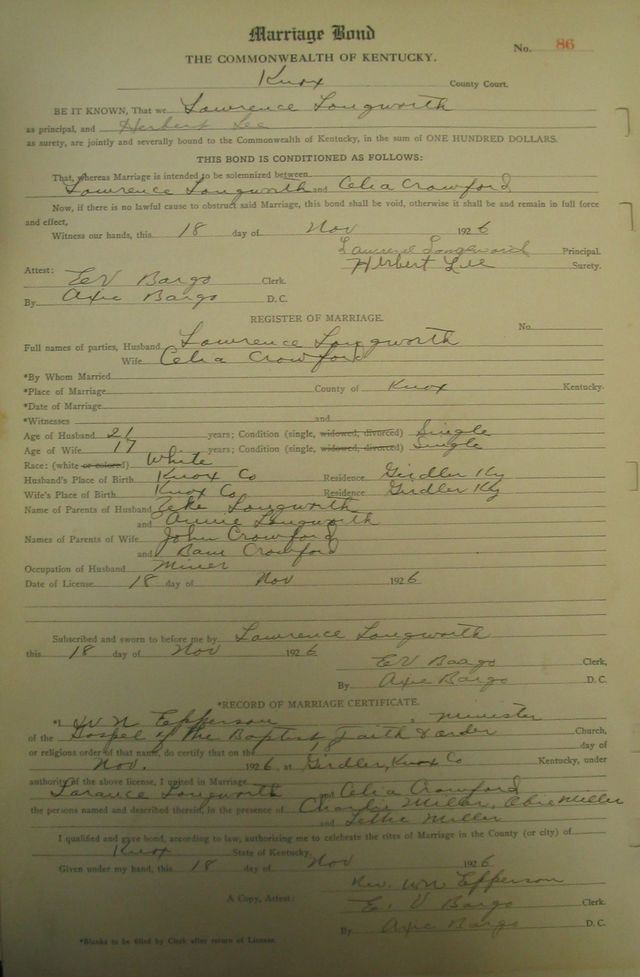 Marriage Bond
No. 86
THE COMMONWEALTH OF KENTUCKY.
Knox County Court.
BE IT KNOWN, That we Lawrence Longworth
as principal, and Herbert Lee
as surety, are jointly and severally bound to the Commonwealth of Kentucky, in the sum of ONE HUNDRED DOLLARS.
THIS BOND IS CONDITIONED AS FOLLOWS:
That, whereas Marriage is intended to be solemnized between
Lawrence Longworth and Celia Crawford
Now, if there is no lawful cause to obstruct said Marriage, this bond shall be void, otherwise it shall be and remain in full force
and effect,
Witness our hands, this 18 day of Nov 1926
Lawrence Longworth Principal.
Herbert Lee Surety.
Attest:
EV Bargo Clerk.
By Axie Bargo D. C.
REGISTER OF MARRIAGE.
No.
Full names of parties, Husband Lawrence Longworth
Wife Celia Crawford
*By Whom Married
*Place of Marriage County of Knox Kentucky.
*Date of Marriage
*Witnesses and
Age of Husband 21 years; Condition (single, widowed, divorced) Single
Age of Wife 17 years; Condition (single, widowed, divorced) Single
Race: (white or colored) White
Husband's Place of Birth Knox Co Residence Girdler Ky
Wife's Place of Birth Knox Co Residence Girdler Ky
Name of Parents of Husband Zeke Longworth
and Annie Longworth
Names of Parents of Wife John Crawford
and Crawford
Occupation of Husband Miner
Date of License 18 day of Nov 1926
Subscribed and sworn to before me by Lawrence Longworth
this 18 day of Nov 1926
EV Bargo Clerk,
By Axie Bargo D. C.
*RECORD OF MARRIAGE CERTIFICATE.
*I W N Epperson, Minister
of the Gospel of the Baptist Faith & order Church,
or religious order of that name, do certify that on the 18 day of
Nov. 1926, at Girdler, Knox Co Kentucky, under
authority of the above license, I united in Marriage
Larance Longworth and Celia Crawford
the persons named and described therein, in the presence of Charlie Miller, Obie Miller
and Lettie Miller
I qualified and gave bond, according to law, authorizing me to celebrate the rites of Marriage in the County (or city) of
Knox State of Kentucky.
Given under my hand, this 18 day of Nov 1926
Rev. W N Epperson
A Copy, Attest: E. V Bargo Clerk.
By Axie Bargo D. C.
*Blanks to be filled by Clerk after return of License.